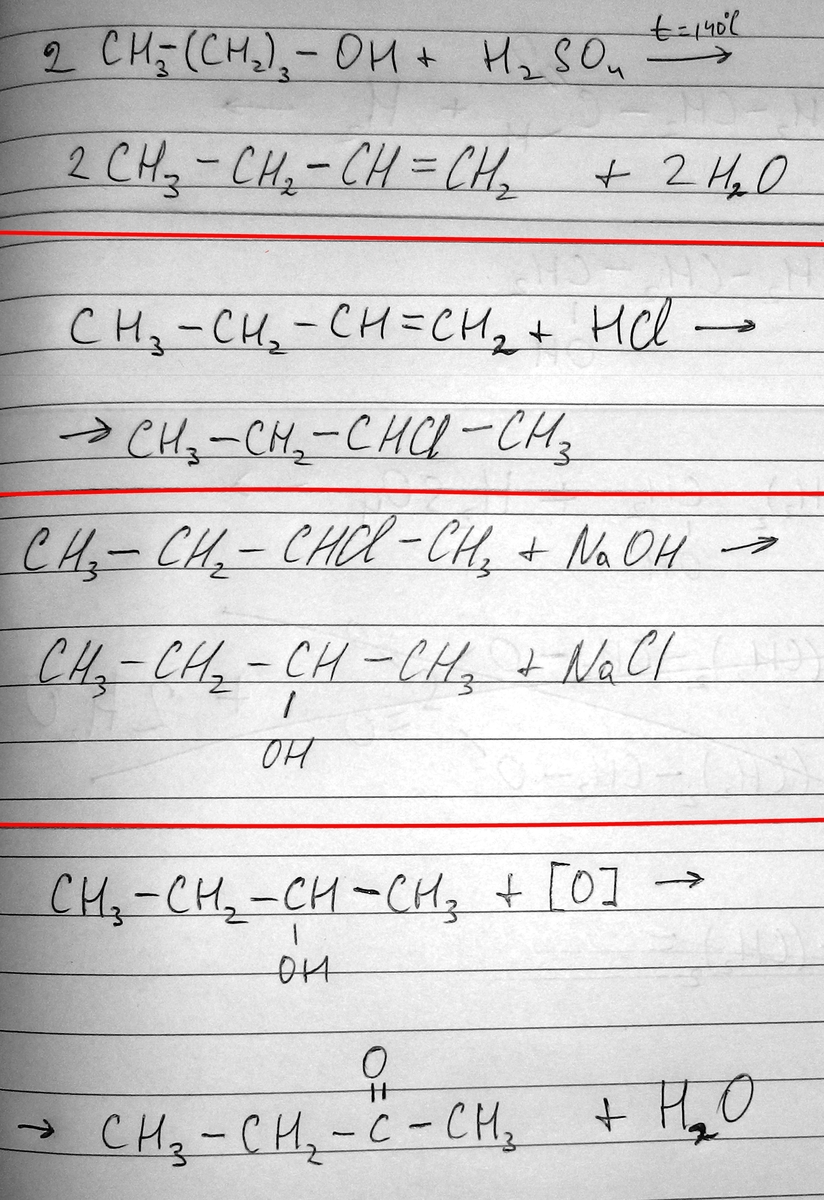 2 CH₃-(CH₂)₃-OH + H₂SO₄ t=140°C →
2CH₃-CH₂-CH=CH₂ + 2H₂O
CH₃-CH₂-CH=CH₂ + HCl →
→ CH₃-CH₂-CHCl-CH₃
CH₃-CH₂-CHCl-CH₃ + NaOH →
CH₃-CH₂-CH-CH₃ + NaCl
OH
CH₃-CH₂-CH-CH₃ + [O] →
OH
O
→ CH₃-CH₂-C-CH₃ + H₂O